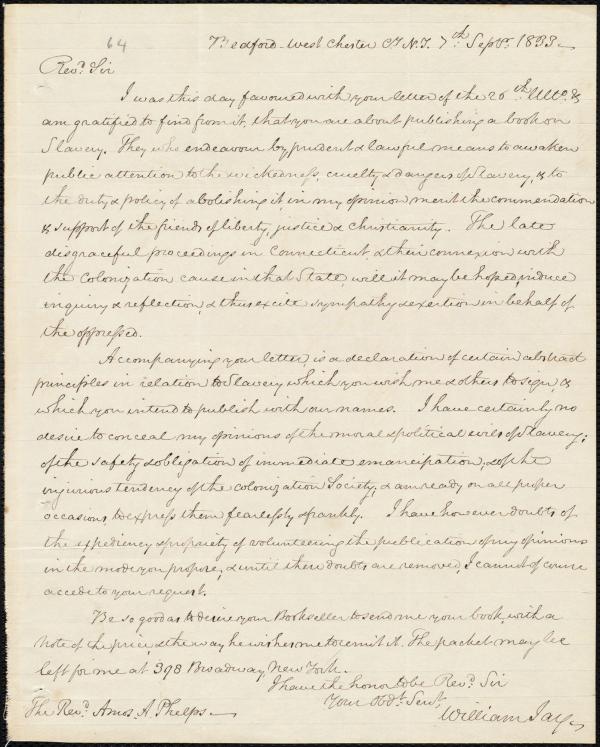 64
Bedford West Chester Cy N.Y. 7th Septr. 1833
Revd. Sir
I was this day favoured with your letter of the 26th Ulto. &
am gratified to find from it, that you are about publishing a book on
Slavery. They who endeavour by prudent & lawful means to awaken
public attention to the wickedness, cruelty & dangers of Slavery, & to
the duty & policy of abolishing it, in my opinion merit the commendation
& support of the friends of liberty, justice & Christianity. The late
disgraceful proceedings in Connecticut & their connexion with
the Colonization cause in that State, will it may be hoped, induce
inquiry & reflection, & thus excite sympathy & exertion in behalf of
the oppressed.
Accompanying your letter, is a declaration of certain abstract
principles in relation to Slavery which you wish me & others to sign, &
which you intend to publish with our names. I have certainly no
desire to conceal my opinions of the moral & political evils of Slavery;
of the safety & obligation of immediate emancipation, & of the
injurious tendency of the Colonization Society, & am ready on all proper
occasions, to express them fearlessly & frankly. I have however doubts of
the expediency & propriety of volunteering the publication of my opinions
in the mode you propose, & until these doubts are removed, I cannot of course
accede to your request.
Be so good as to desire your Bookseller to send me your book, with a
note of the price, & the way he wishes me to remit it. The packet may be
left for me at 398 Broadway, New York.
I have the honor to be Revd. Sir
Your Obdt. Servt.
William Jay
The Revd. Amos A. Phelps